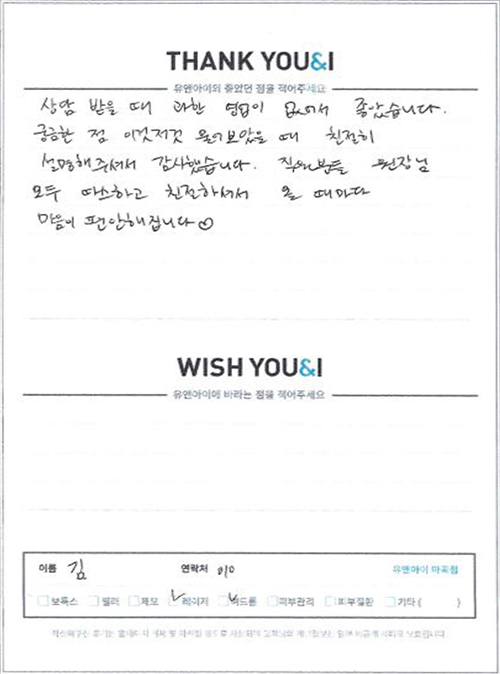 THANK YOU&I
유앤아이의 좋았던 점을 적어주세요
상담 받을 때 과한 영업이 없어서 좋았습니다.
궁금한 점 이것저것 물어보았을 때 친절히
설명해주셔서 감사했습니다. 직원분들 원장님
모두 따스하고 친절하셔서 올 때마다
마음이 편안해집니다
WISH YOU&I
유앤아이에 바라는 점을 적어주세요
이름 김 연락처 010 유앤아이 마곡점
보톡스 필러 제모 레이저 여드름 피부관리 피부질환 기타 ( )